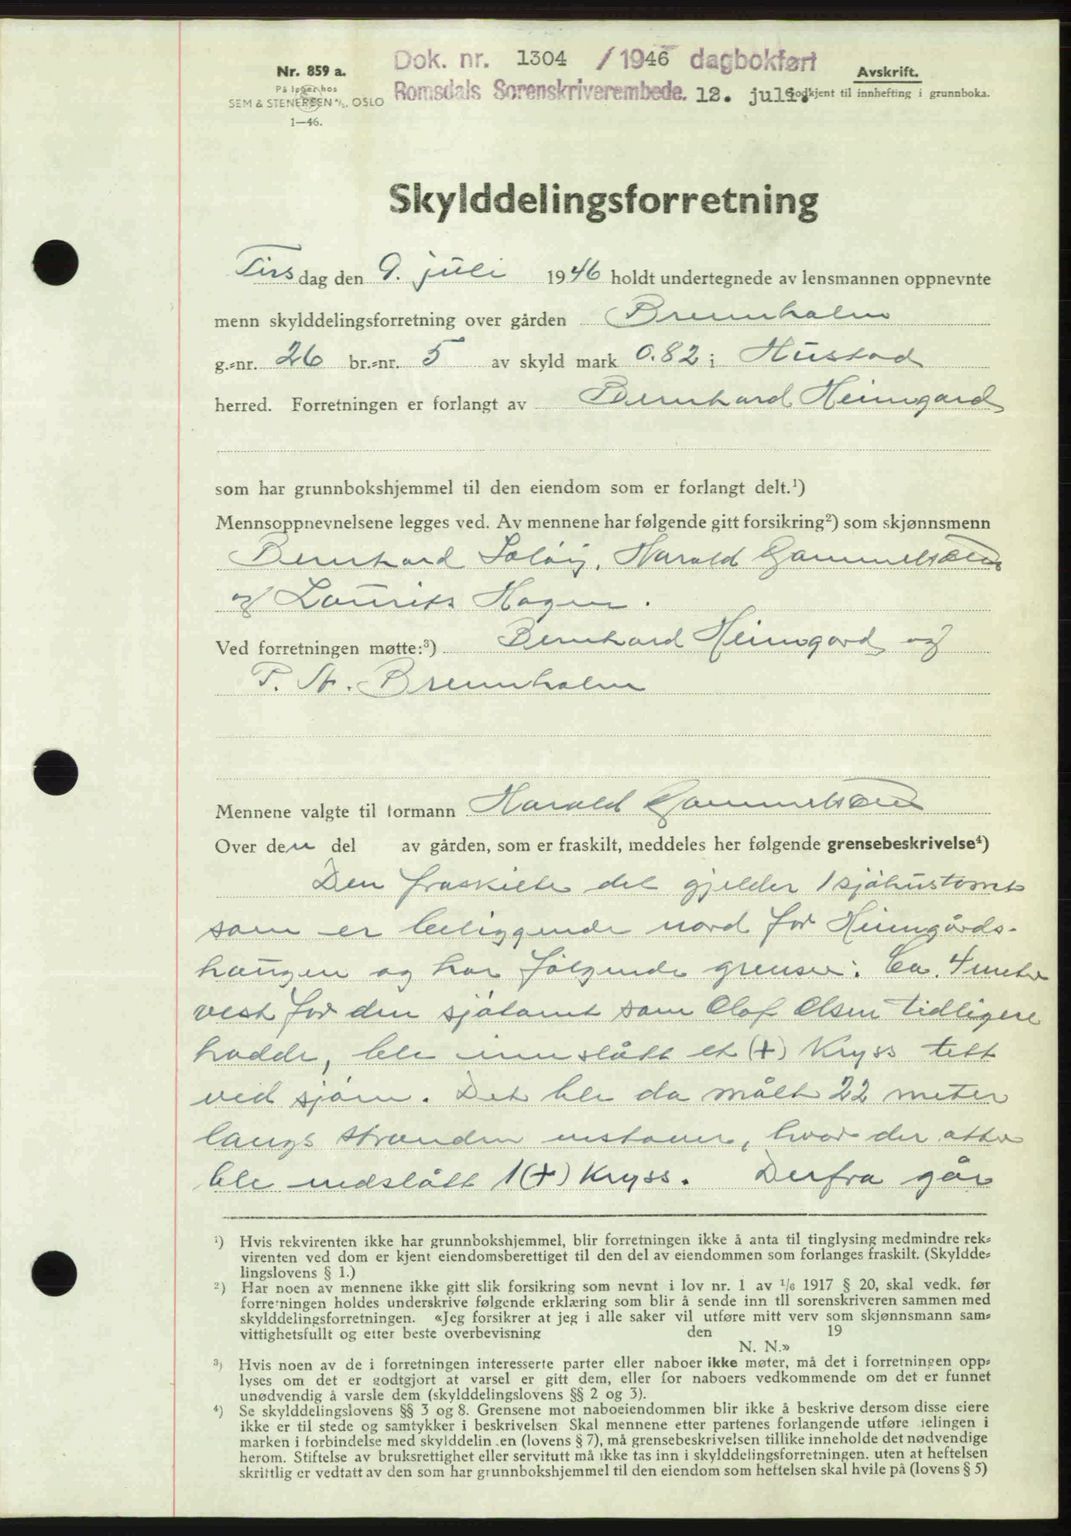 Nr. 859 a.
På lager hos
SEM & STENERSEN A/S, OSLO
1—46.
Dok. nr. 1304 /1946 dagbokført
Romsdals Sorenskriverembede. 12. juli.
Avskrift.
Godkjent til innhefting i grunnboka.
Skylddelingsforretning
Tirsdag den 9. juli 1946 holdt undertegnede av lensmannen oppnevnte
menn skylddelingsforretning over gården Brennholm
g.-nr. 26 br.-nr. 5 av skyld mark 0.82 i Hustad
herred. Forretningen er forlangt av Bernhard Heimgard
som har grunnbokshjemmel til den eiendom som er forlangt delt.¹)
Mennsoppnevnelsene legges ved. Av mennene har følgende gitt forsikring²) som skjønnsmenn
Bernhard Harald Gammelsæter
og Laurits Hagen.
Ved forretningen møtte:³) Bernhard Heimgard og
P. Brennholm
Mennene valgte til formann Harald Gammelsæter
Over den del av gården, som er fraskilt, meddeles her følgende grensebeskrivelse⁴)
Den fraskilte del gjelder 1 sjøhustomt
som er beliggende nord for Heimgårds-
haugen og har følgende grenser: Ca. 4 meter
vest for den sjøtomt som Olaf Olsen tidligere
hadde, ble innslått et (+) Kryss tett
ved sjøen. Det ble da målt 22 meter
langs stranden vestover, hvor der atter
ble nedslått 1 (+) Kryss. Derfra går
¹) Hvis rekvirenten ikke har grunnbokshjemmel, blir forretningen ikke å anta til tinglysing medmindre rek-
virenten ved dom er kjent eiendomsberettiget til den del av eiendommen som forlanges fraskilt. (Skyldde-
lingslovens § 1.)
²) Har noen av mennene ikke gitt slik forsikring som nevnt i lov nr. 1 av 1/6 1917 § 20, skal vedk. før
forretningen holdes underskrive følgende erklæring som blir å sende inn til sorenskriveren sammen med
skylddelingsforretningen. «Jeg forsikrer at jeg i alle saker vil utføre mitt verv som skjønnsmann sam-
vittighetsfullt og etter beste overbevisning den 19
N. N.»
³) Hvis noen av de i forretningen interesserte parter eller naboer ikke møter, må det i forretningen opp-
lyses om det er godtgjort at varsel er gitt dem, eller for naboers vedkommende om det er funnet
unødvendig å varsle dem (skylddelingslovens §§ 2 og 3).
⁴) Se skylddelingslovens §§ 3 og 8. Grensene mot naboeiendommen blir ikke å beskrive dersom disse eiere
ikke er til stede og samtykker i beskrivelsen Skal mennene etter partenes forlangende utføre delingen i
marken i forbindelse med skylddelingen (lovens § 7), må grensebeskrivelsen tillike inneholde det nødvendige
herom. Stiftelse av bruksrettighet eller servitutt må ikke tas inn i skylddelingsforretningen, uten at heftelsen
skriftlig er vedtatt av den som har grunnbokshjemmel til den eiendom som heftelsen skal hvile på (lovens § 5)